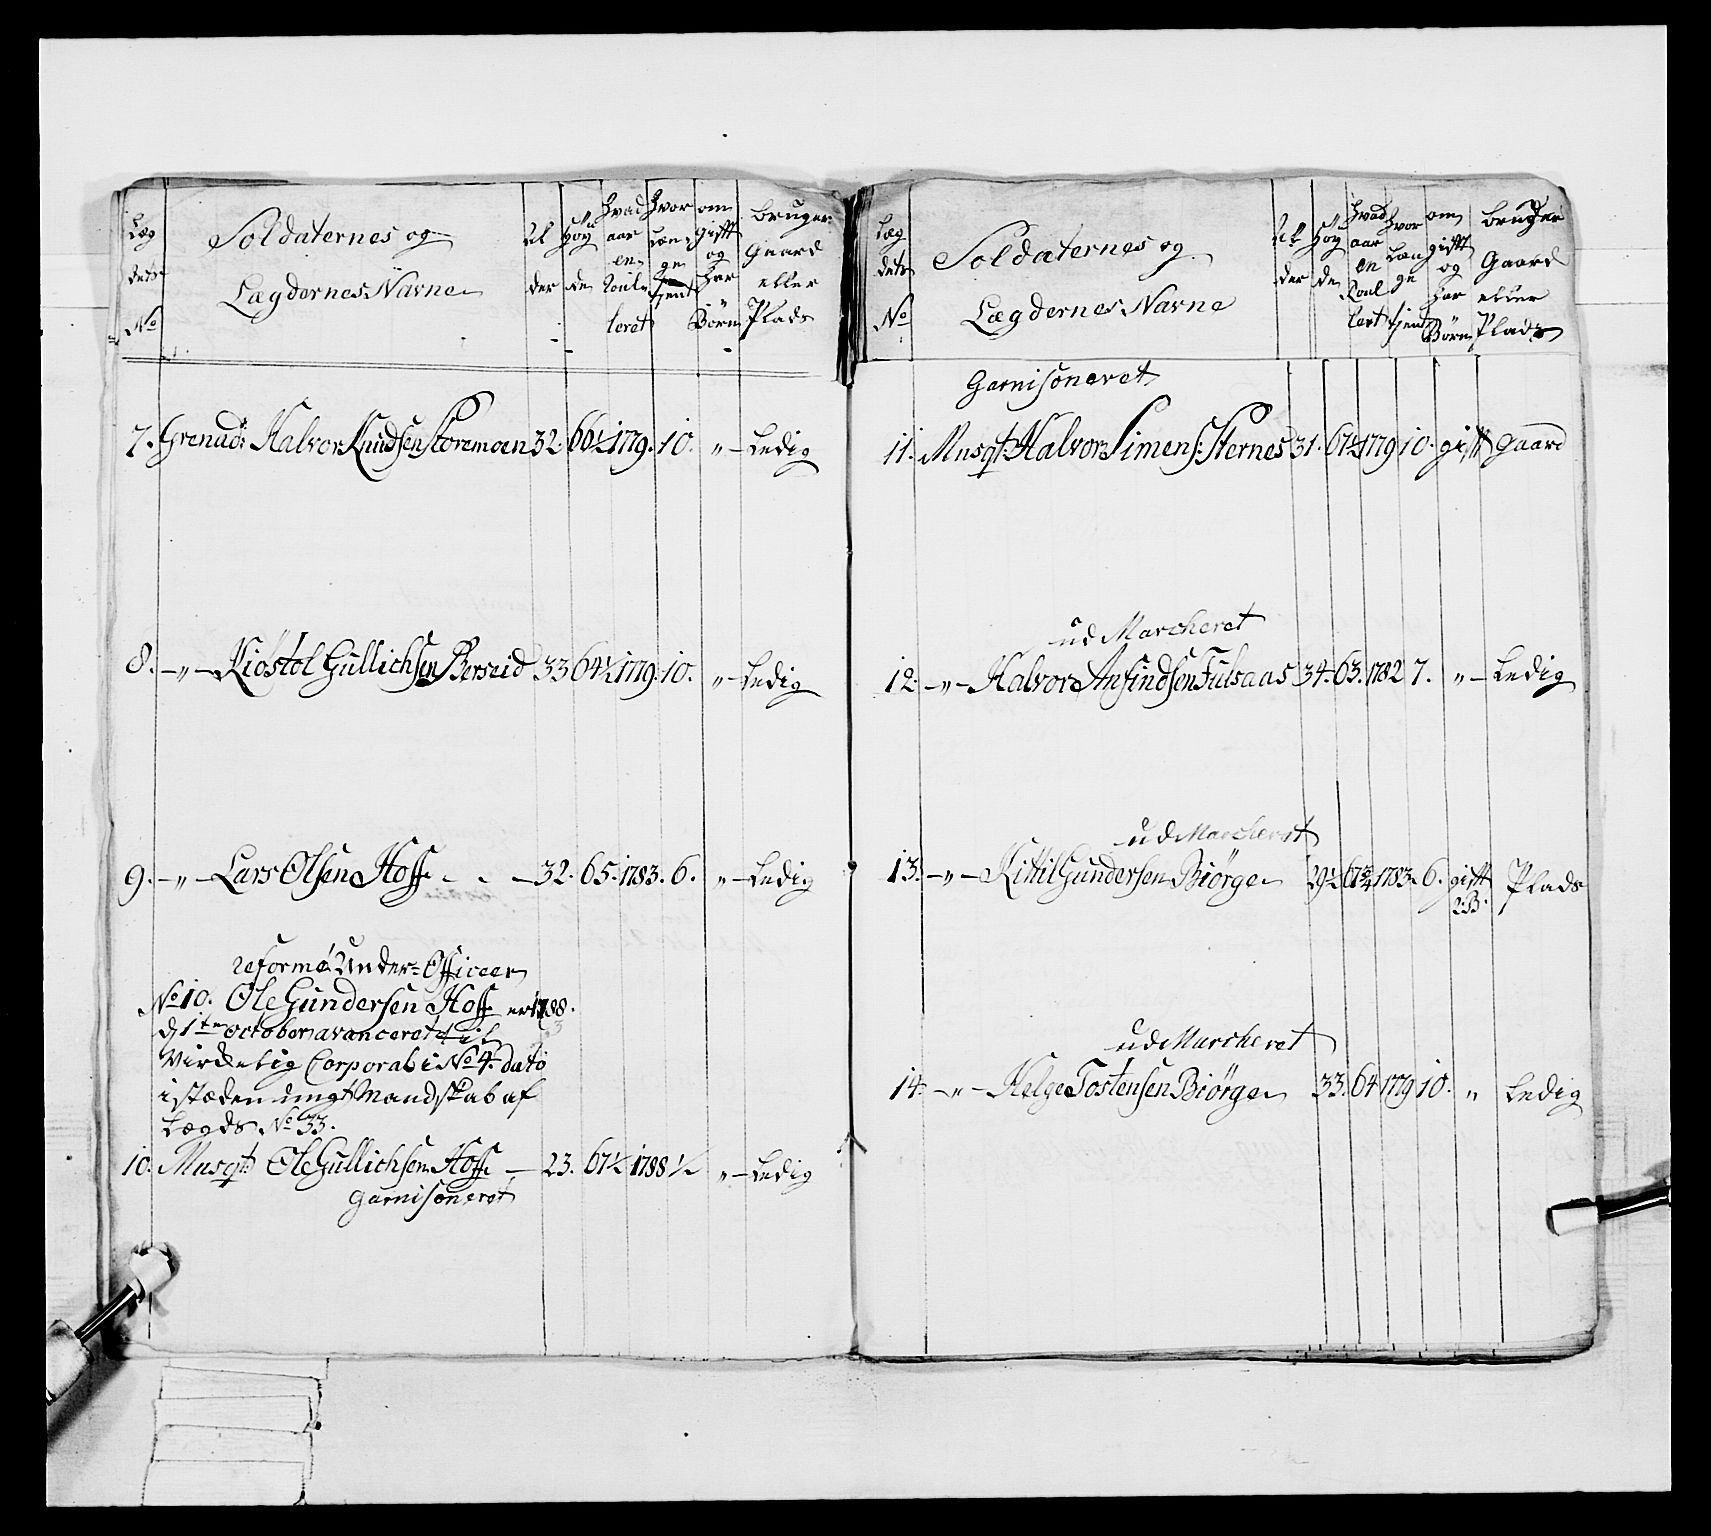 Læg dets No
Soldaternes og Lægdernes Navne
Al der
Høy de
hvad aar en Roul leret
hvor Læn ge Tjent
om gift og har Börn
bruger Gaard eller Plads
7. Grenad: Halvor Knudsen Storemoen 32. 66½ 1779. 10. " - Ledig
8. - " - Kiöstol Gullichsen Berseid 33 64½ 1779. 10. " - Ledig
9. - " - Lars Olsen Hoff - - - 32. 65. 1783. 6. " - Ledig
reformé Under-Officeer
No 10. Ole Gundersen Hoff er 1788.
d 1ten october avanceret til
Virkelig Corporal i No 4. dato
i stæden ungt Mandskab af
Lægds No 33.
10. Musqt: Ole Gullichsen Hoff - 23. 67½ 1788 ½ " - Ledig
Garnisoneret
Læg dets No
Soldaternes og Lægdernes Navne
Al der
Høy de
hvad aar en Roul lert
hvor Læn ge tjent
om gift og har Börn
bruger Gaard eller Plads
Garnisoneret
11. Musqt: Halvor Simens: Sternes 31. 67½ 1779 10. gift Gaard
ud Marcheret
12. - " - Halvor Anfindsen Fulsaas 34. 63. 1782 7. " - Ledig
ud Marcheret
13. - " - Kittil Gundersen Biörge 29½ 67¾ 1783. 6. gift 2:B. Plads
ud Marcheret
14. - " - Helge Tostensen Biörge 33. 64 1779 10. " Ledig